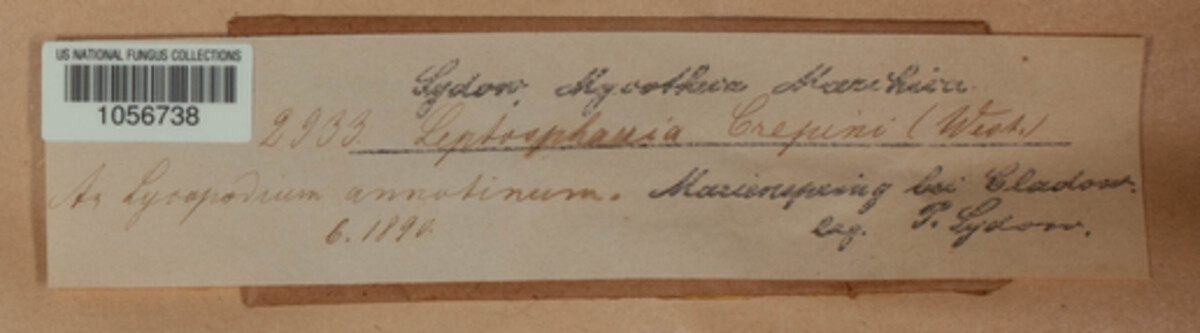 US NATIONAL FUNGUS COLLECTIONS
1056738
Sydow, Mycotheca Marchica.
2933. Leptosphaeria Crepini (West.)
An Lycopodium annotinum. Marienspring bei Cladow.
6. 1890. leg. P. Sydow.